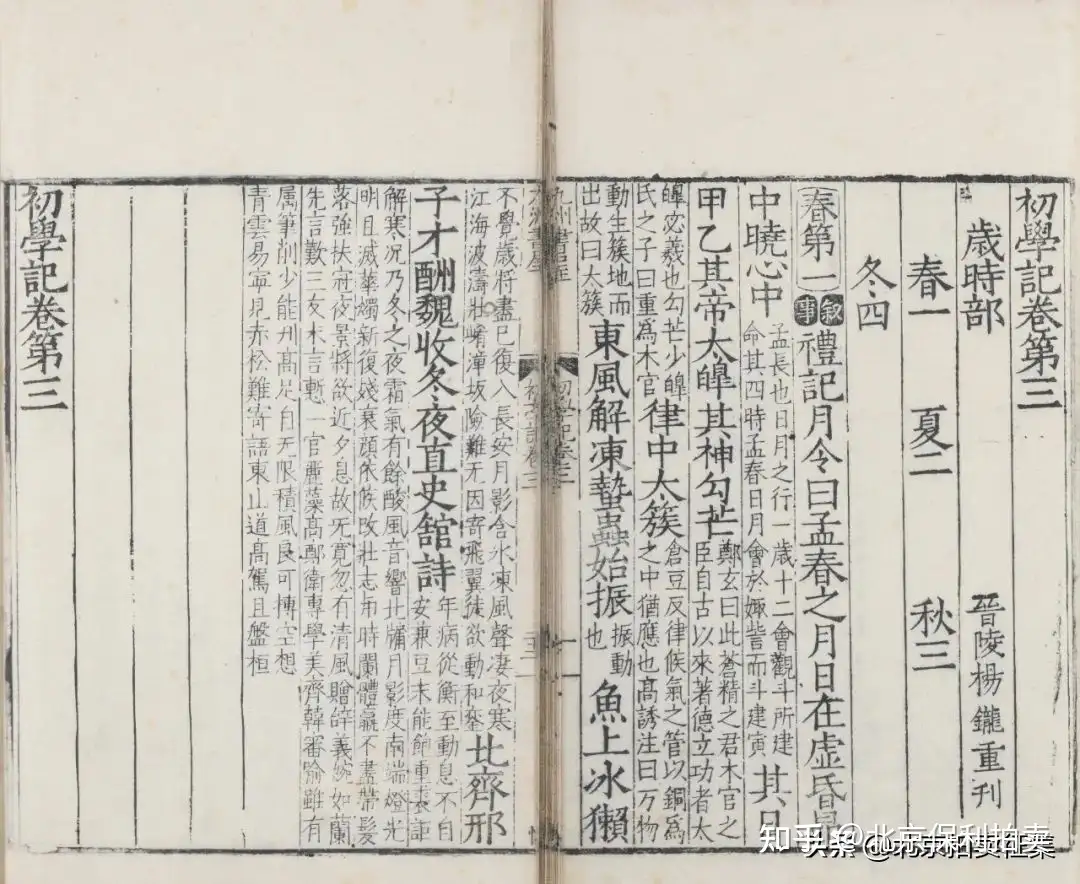 初學記卷第三
歲時部 晉陵楊鑨重刊
春一 夏二 秋三
冬四
春第一 叙事 禮記月令曰孟春之月日在虛昏
中曉心中 孟長也日月之行一歲十二會觀斗所建
命其四時孟春日月會於娵訾而斗建寅 其日
甲乙其帝大皥其神勾芒 鄭玄曰此蒼精之君木官之
臣自古以來著德立功者太
皥宓羲也勾芒少皥
氏之子曰重爲木官 律中大簇 倉豆反律候氣之管以銅爲
之中猶應也高誘注曰万物
動生簇地而
出故曰太簇 東風解凍蟄蟲始振 振動
也 魚上冰獺
初學記卷三
不覺歲將盡已復入長安月影合冰凍風聲凄夜寒
江海波濤壯崤漳坂險難无因寄飛翼徒欲動和鑾 北齊邢
子才酬魏收冬夜直史舘詩 年病從衡至動息不自
安兼豆未能飽重裘詎
解寒況乃冬之夜霜氣有餘酸風音響北牖月影度南端燈光
明且滅華燭新復殘衰顔依候改壯志与時闌體羸不盡帶髮
落強扶冠夜景將欲近夕息故无寬忽有清風贈辝義婉如蘭
先言歎三友末言慙一官麗藻高鄭衛專學美齊韓審喻雖有
属筆削少能刋髙足自无限積風良可摶空想
青雲易寧見赤松難寄語東山道髙駕且盤桓
初學記卷第三
知乎 @北京保利拍卖